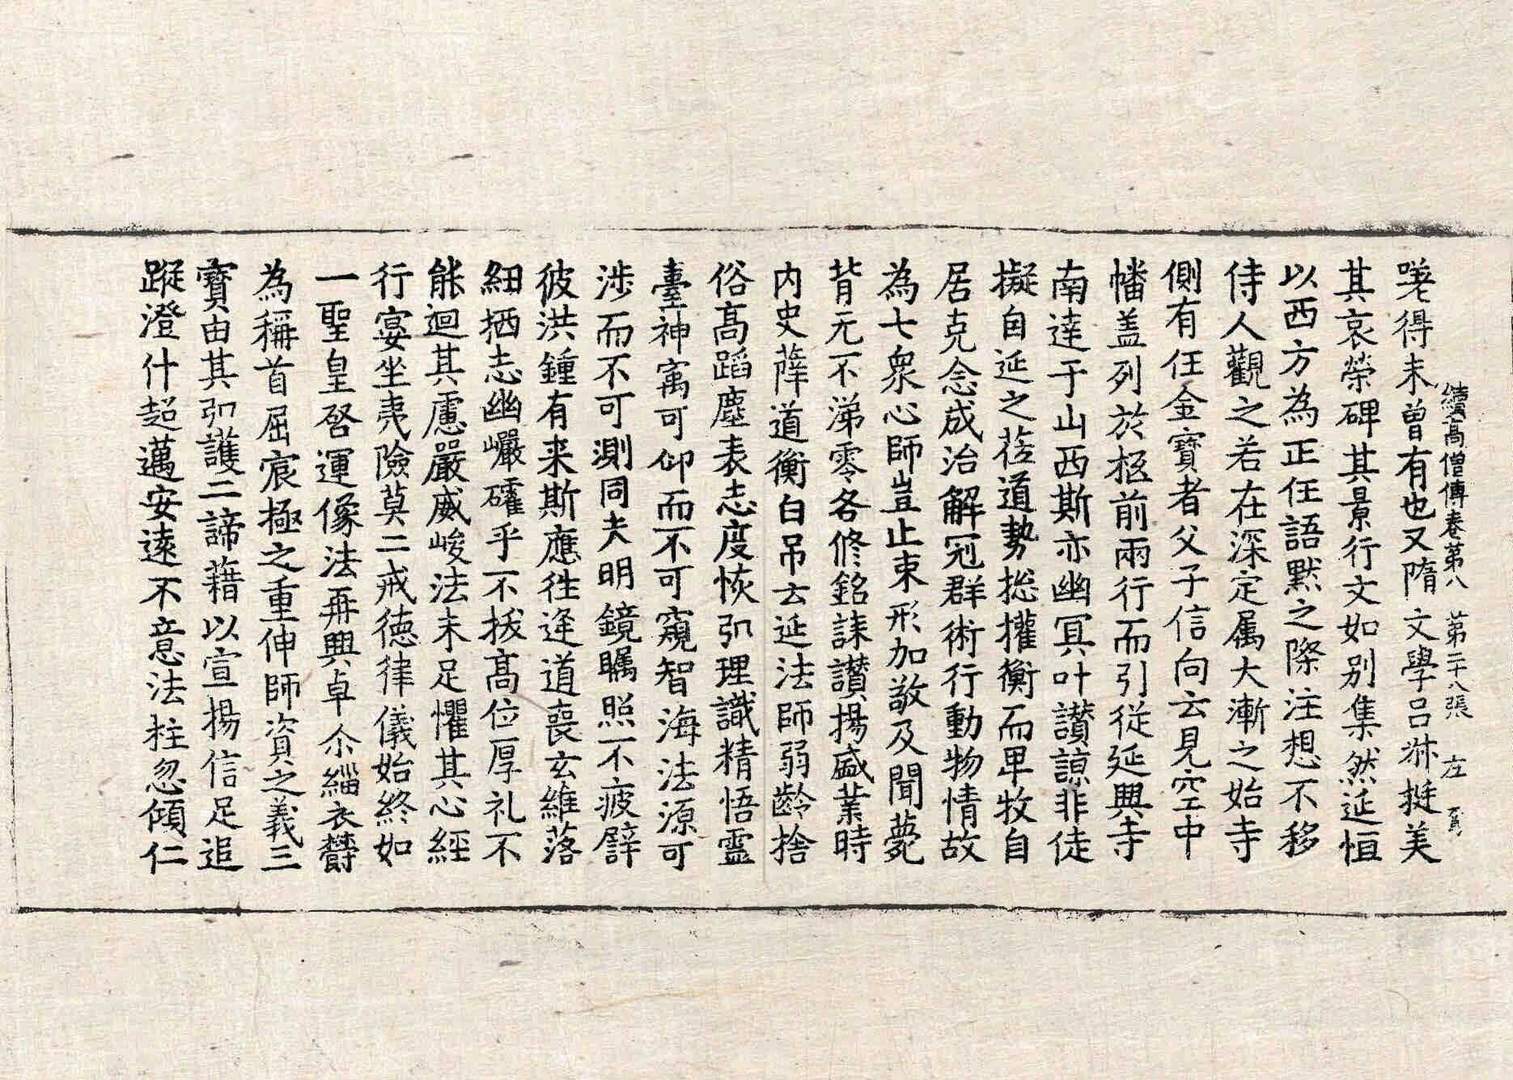 續高僧傳卷第八 第二十八張 左
嘆得未曽有也又隋文學呂叔挺美
其哀榮碑其景行文如別集然延恒
以西方為正任語默之際注想不移
侍人觀之若在深定属大漸之始寺
側有任金寶者父子信向云見空中
幡盖列於柩前兩行而引従延興寺
南達于山西斯亦幽冥叶讃諒非徒
擬自延之莅道勢揔攉衡而卑牧自
居克念成治解冠群術行動物情故
為七衆心師豈止束形加敬及聞薨
背无不涕零各修銘誄讃揚盛業時
内史薛道衡白吊云延法師弱齡捨
俗高蹈塵表志度恢弘理識精悟靈
臺神㝢可仰而不可窺智海法源可
渉而不可測同夫明鏡矚照不疲譬
彼洪鍾有来斯應往逢道喪玄維落
紐栖志幽巖確乎不拔髙位厚礼不
能迴其慮嚴威峻法未足懼其心經
行宴坐夷險莫二戒徳律儀始終如
一聖皇啓運像法再興卓尒緇衣欝
為稱首屈宸極之重伸師資之義三
寶由其弘護二諦藉以宣揚信足追
蹤澄什超邁安遠不意法柱忽傾仁